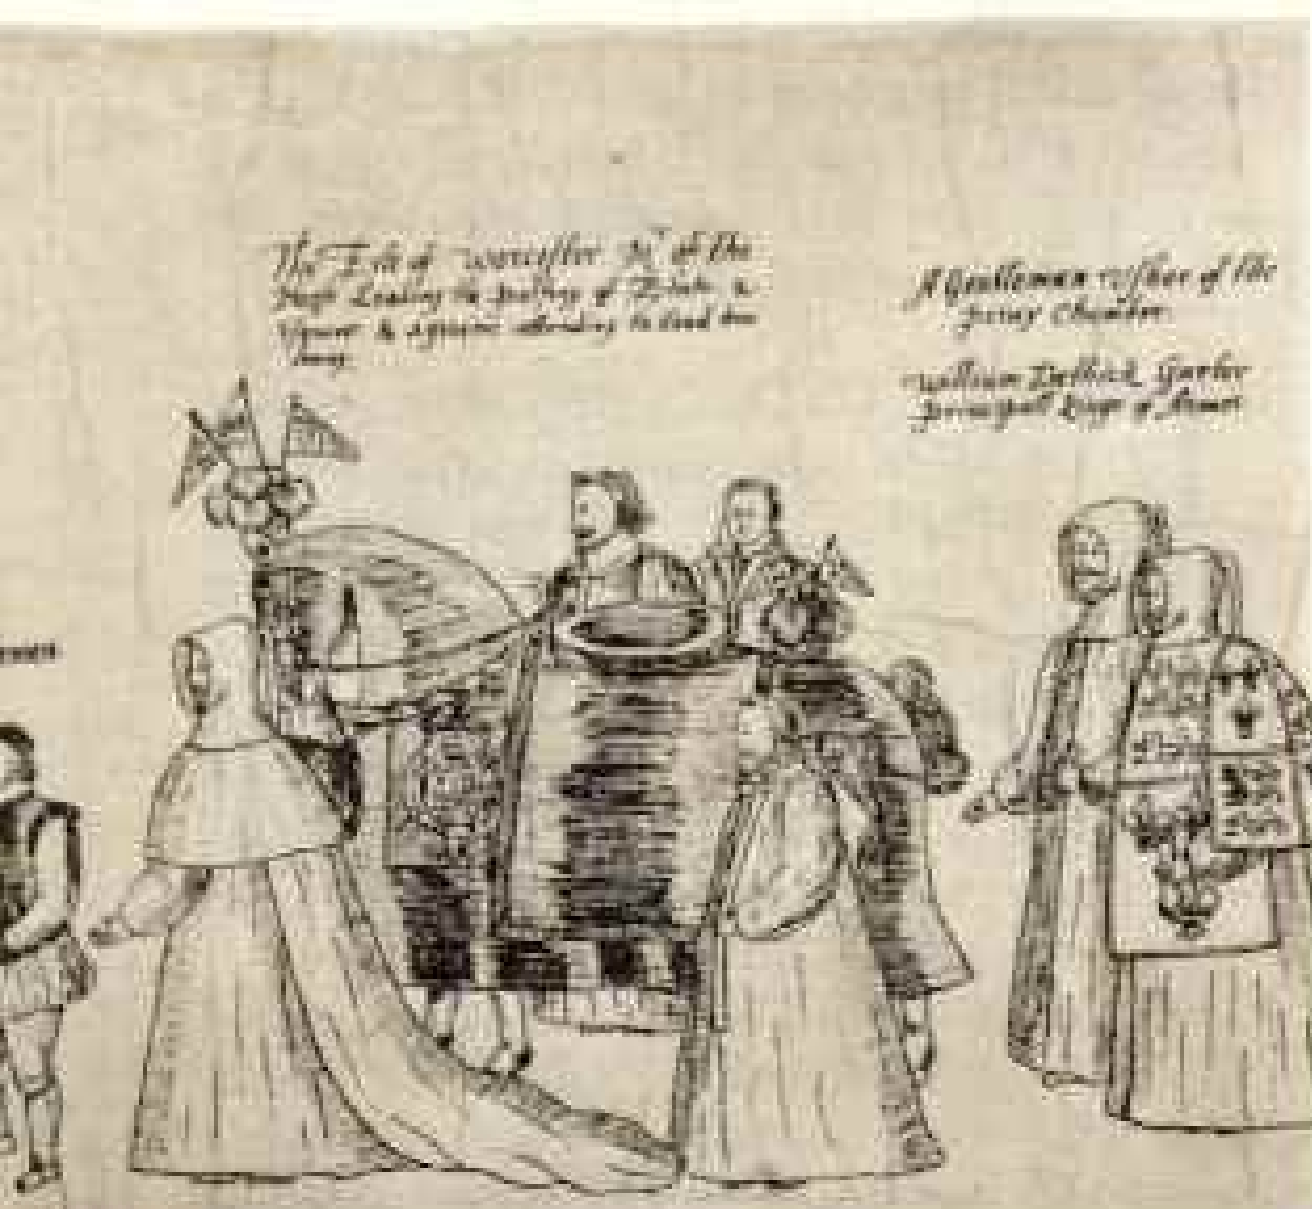 The Erle of Worcester Mr of the
Leading the Palfrey of Estate &
attending to lead him
away
A Gentleman Vsher of the
privy Chamber
William Dethick Garter
principall Kinge of Armes